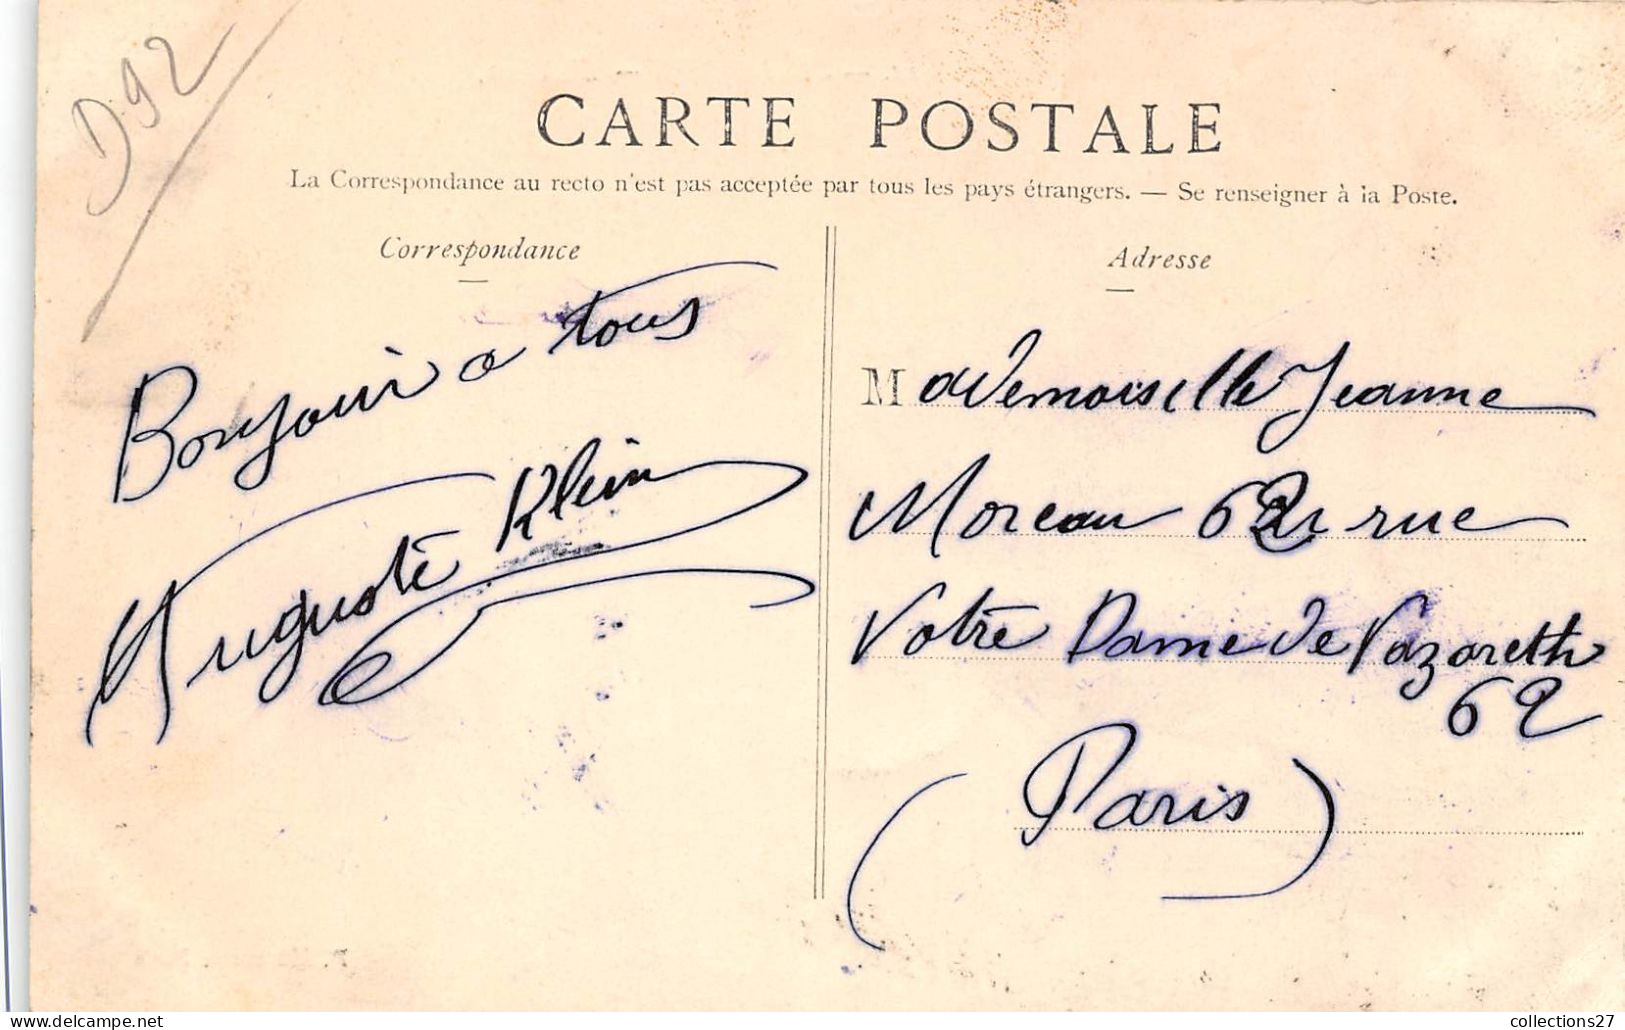 D92
CARTE POSTALE
La Correspondance au recto n'est pas acceptée par tous les pays étrangers. — Se renseigner à la Poste.
Correspondance
Bonjour a tous
Auguste Klein
Adresse
Mademoiselle Jeanne
Moreau 62 rue
Notre Dame de Nazareth
62
(Paris)
collections27